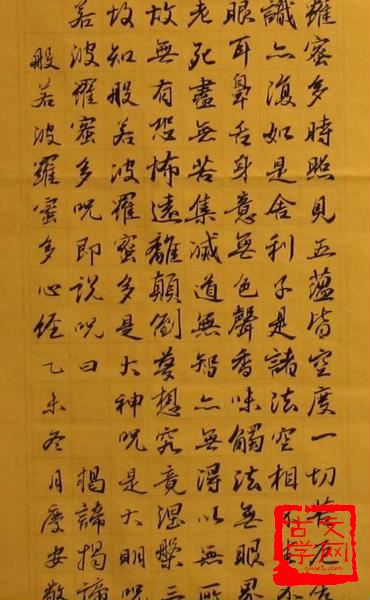 羅蜜多時照見五蘊皆空度一切苦厄舍
識亦復如是舍利子是諸法空相不生不
眼耳鼻舌身意無色聲香味觸法無眼界
老死盡無苦集滅道無智亦無得以無所
故無有恐怖遠離顛倒夢想究竟涅槃三
故知般若波羅蜜多是大神呪是大明呪
若波羅蜜多呪即說呪曰 揭諦揭諦
般若波羅蜜多心經 乙未冬月 安敬
古文学网